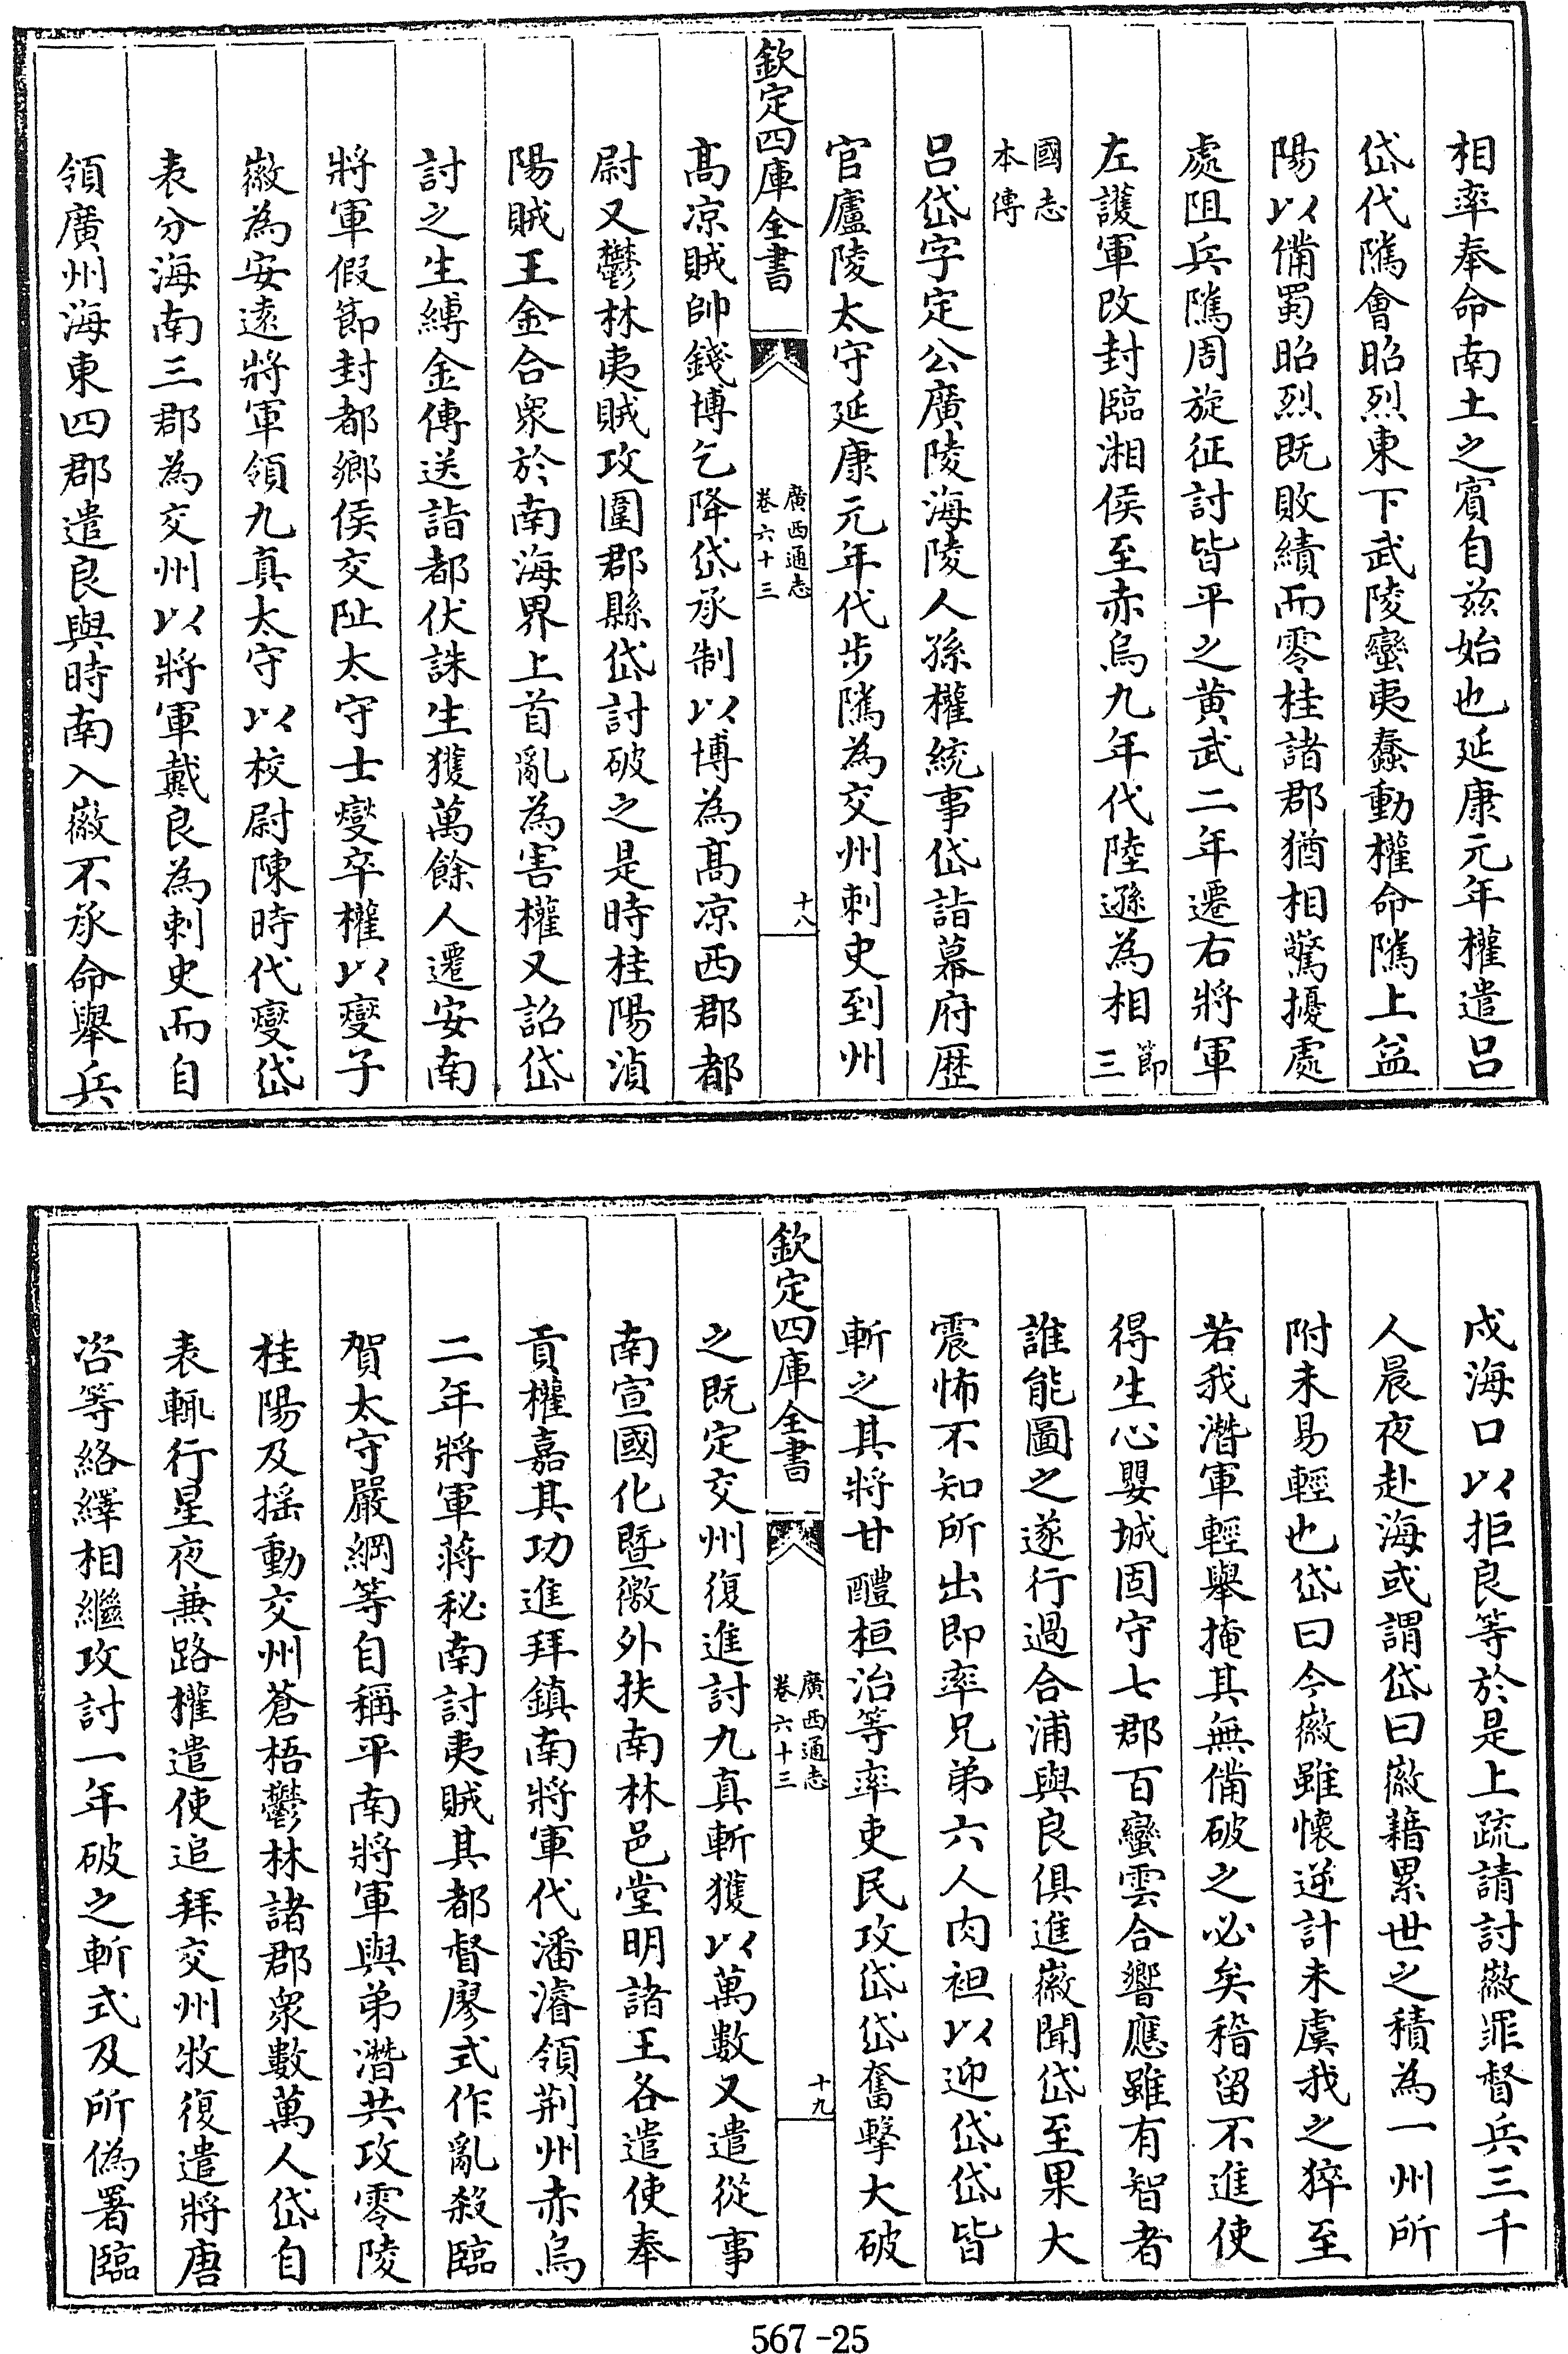 相率奉命南土之賔自兹始也延康元年權遣吕
岱代隲會昭烈東下武陵蠻夷蠢動權命隲上益
陽以備蜀昭烈既敗績而零桂諸郡猶相驚擾處
處阻兵隲周旋征討皆平之黄武二年遷右將軍
左護軍改封臨湘侯至赤烏九年代陸遜為相節三
國志
本傳
吕岱字定公廣陵海陵人孫權統事岱詣幕府歴
官廬陵太守延康元年代步隲為交州刺史到州
欽定四庫全書
廣西通志
卷六十三
十八
髙凉賊帥錢博乞降岱承制以博為髙凉西郡都
尉又鬱林夷賊攻圍郡縣岱討破之是時桂陽湞
陽賊王金合衆於南海界上首亂為害權又詔岱
討之生縛金傳送詣都伏誅生獲萬餘人遷安南
將軍假節封都鄉侯交阯太守士燮卒權以燮子
徽為安逺將軍領九真太守以校尉陳時代燮岱
表分海南三郡為交州以將軍戴良為刺史而自
領廣州海東四郡遣良與時南入徽不承命舉兵
戍海口以拒良等於是上疏請討徽罪督兵三千
人晨夜赴海或謂岱曰徽藉累世之積為一州所
附未易輕也岱曰今徽雖懷逆計未虞我之猝至
若我濳軍輕舉掩其無備破之必矣稽留不進使
得生心嬰城固守七郡百蠻雲合響應雖有智者
誰能圖之遂行過合浦與良俱進徽聞岱至果大
震怖不知所出即率兄弟六人肉袒以迎岱岱皆
斬之其將甘醴桓治等率吏民攻岱岱奮擊大破
欽定四庫全書
廣西通志
卷六十三
十九
之既定交州復進討九真斬獲以萬數又遣從事
南宣國化暨徼外扶南林邑堂明諸王各遣使奉
貢權嘉其功進拜鎮南將軍代潘濬領荆州赤烏
二年將軍蔣秘南討夷賊其都督廖式作亂殺臨
賀太守嚴綱等自稱平南將軍與弟濳共攻零陵
桂陽及揺動交州蒼梧鬱林諸郡衆數萬人岱自
表輒行星夜兼路權遣使追拜交州牧復遣將唐
咨等絡繹相繼攻討一年破之斬式及所偽署臨
567-25